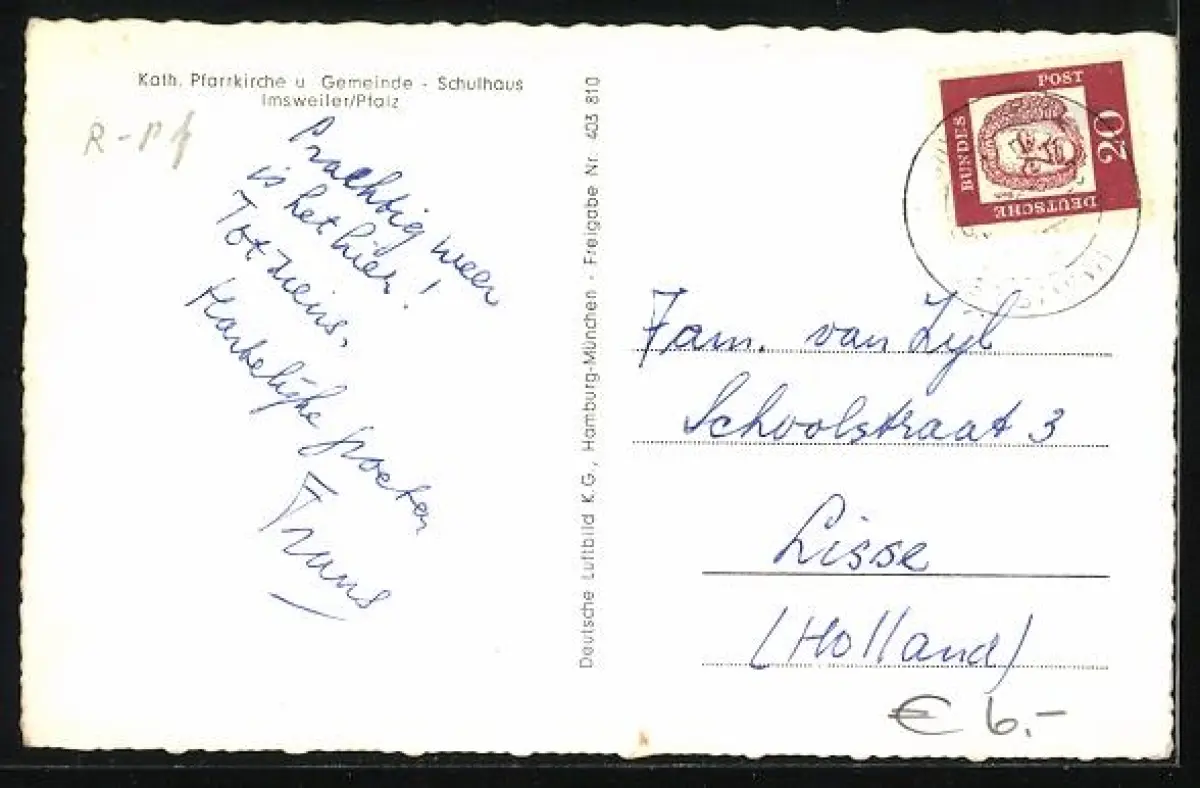 Kath. Pfarrkirche u. Gemeinde - Schulhaus
Imsweiler/Pfalz
R-Pf
Prachtig weer
is het hier!
Tot ziens,
Hartelijke groeten
Frans
Deutsche Luftbild K.G., Hamburg-München - Freigabe Nr. 403 810
DEUTSCHE
BUNDES
POST
20
Fam. van Zijl
Schoolstraat 3
Lisse
(Holland)
€ 6.-